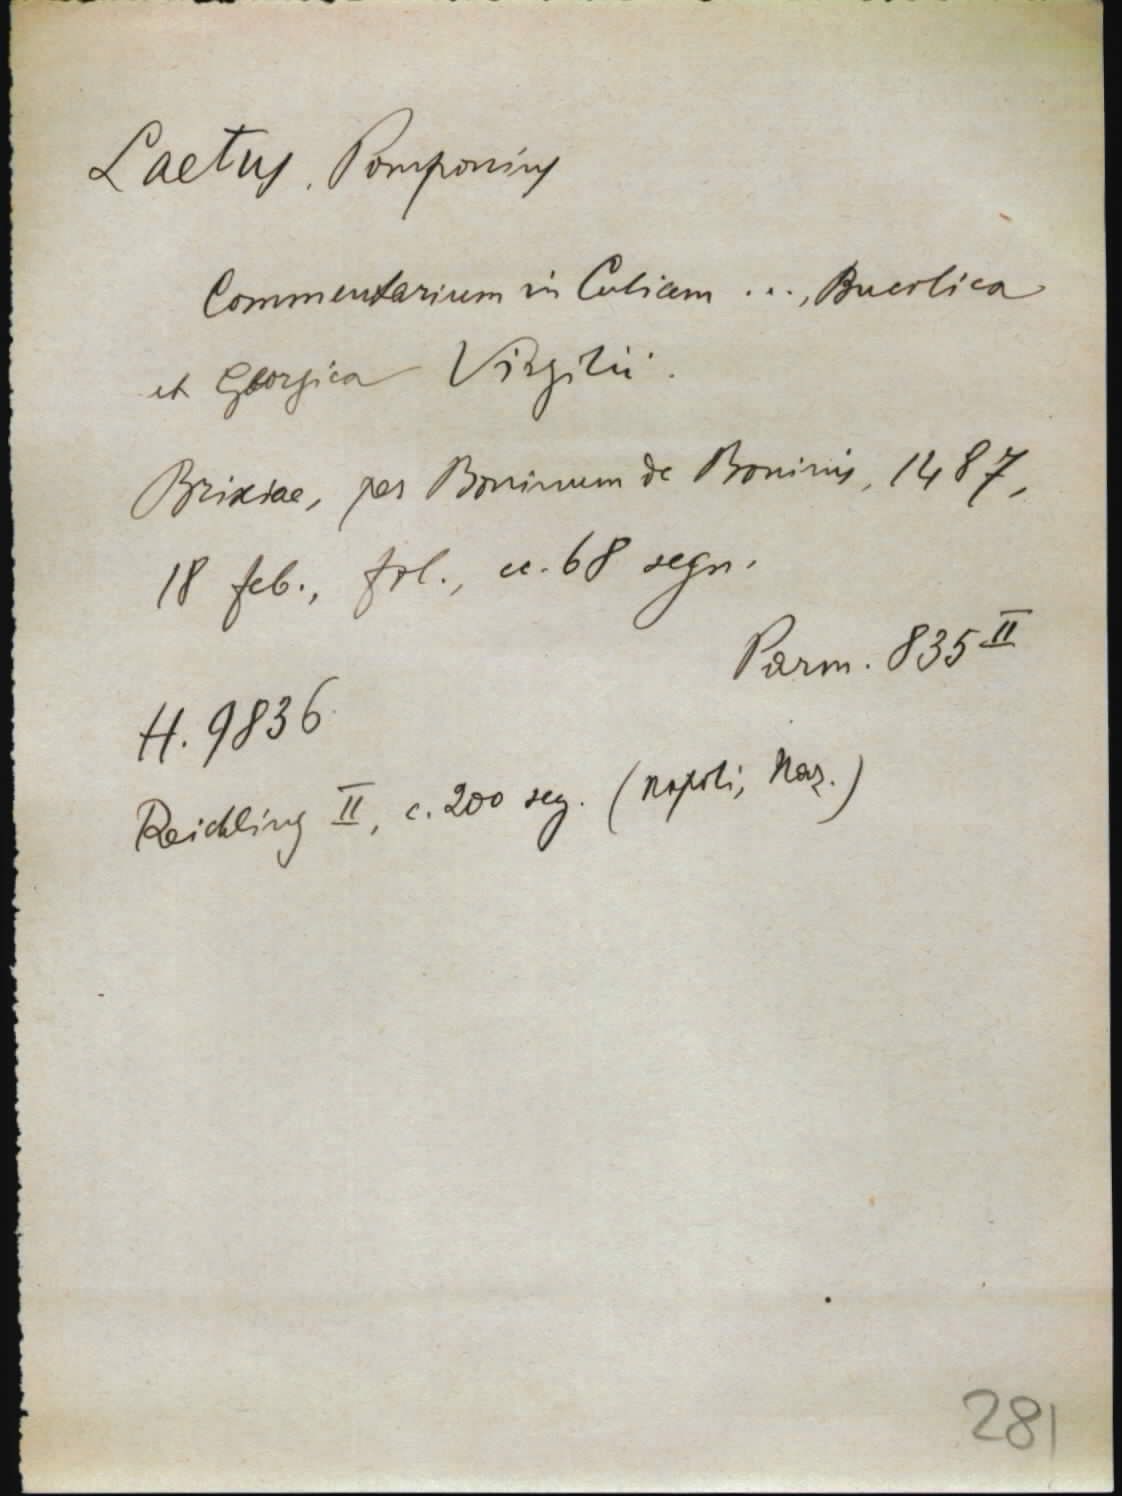 Laetus, Pomponius
Commentarium in Culicem ..., Bucolica
et Georgica Virgilii.
Brixiae, per Boninum de Boninis, 1487,
18 feb., fol., cc. 68 segn.
Parm. 835 II
H. 9836
Reichling II, c. 200 seg. (Napoli, Naz.)
281